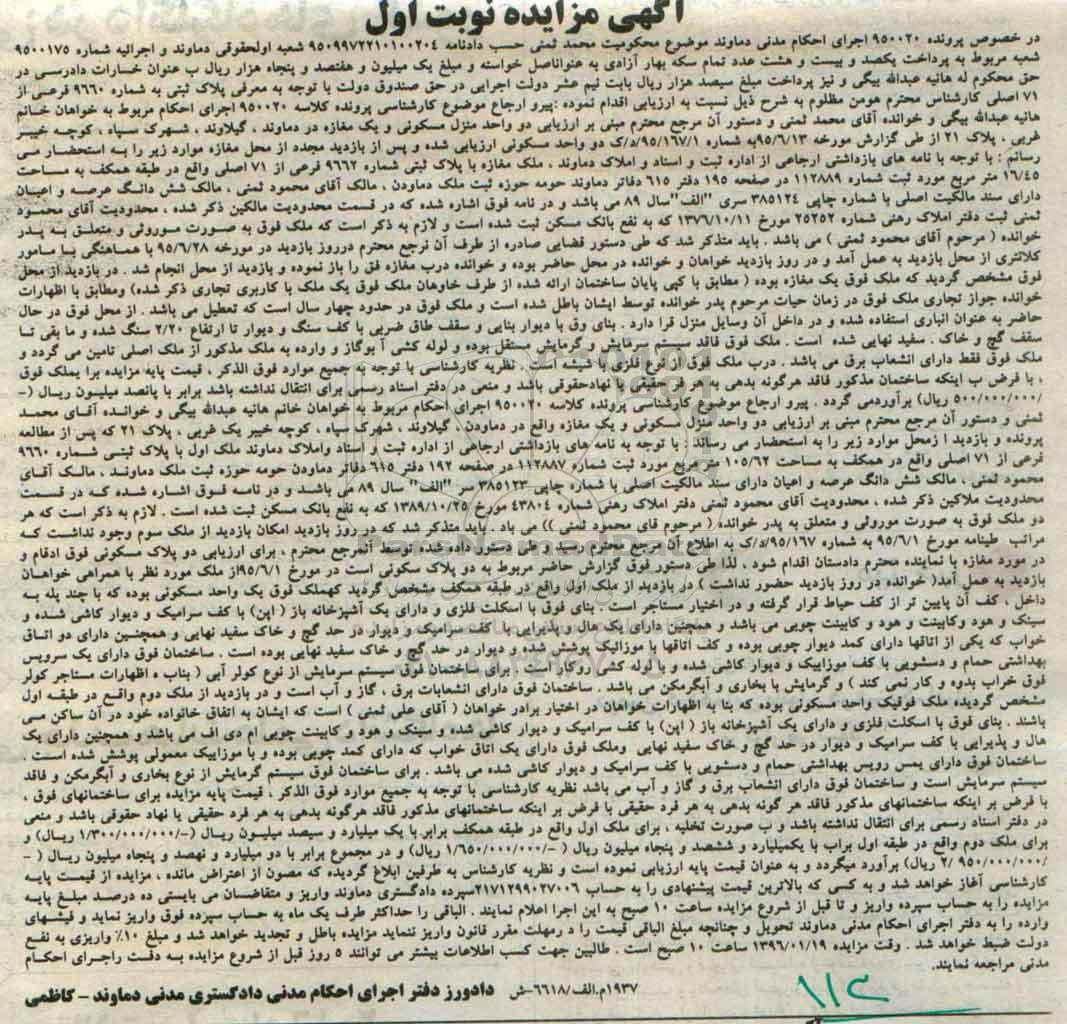 آگهی مزایده نوبت اول
در خصوص پرونده ۹۵۰۰۲۰ اجرای احکام مدنی دماوند موضوع محکومیت محمد ثمنی حسب دادنامه ۹۵۰۹۹۷۲۲۱۰۱۰۰۲۰۴ شعبه اولحقوقی دماوند و اجرائیه شماره ۹۵۰۰۱۷۵
شعبه مربوط به پرداخت یکصد و بیست و هشت عدد تمام سکه بهار آزادی به عنواناصل خواسته و مبلغ یک میلیون و هفتصد و پنجاه هزار ریال ب عنوان خسارات دادرسی در
حق محکوم له هانیه عبدالله بیگی و نیز پرداخت مبلغ سیصد هزار ریال بابت نیم عشر دولت اجرایی در حق صندوق دولت با توجه به معرفی پلاک ثبتی به شماره ۹۶۶۰ فرعی از
۷۱ اصلی کارشناس محترم هومن مظلوم به شرح ذیل نسبت به ارزیابی اقدام نموده :پیرو ارجاع موضوع کارشناسی پرونده کلاسه ۹۵۰۰۲۰ اجرای احکام مربوط به خواهان خانم
هانیه عبدالله بیگی و خوانده آقای محمد ثمنی و دستور آن مرجع محترم مبنی بر ارزیابی دو واحد منزل مسکونی و یک مغازه در دماوند ، گیلاوند ، شهرک سپاه ، کوچه خیبر
غربی ، پلاک ۲۱ از طی گزارش مورخه ۹۵/۶/۱۳به شماره ۹۵/۱۶۷/۱/د/ک دو واحد مسکونی ارزیابی شده و پس از بازدید مجدد از محل مغازه موارد زیر را به استحضار می
رسانم : با توجه با نامه های بازداشتی ارجاعی از اداره ثبت و اسناد و املاک دماوند ، ملک مغازه با پلاک ثبتی شماره ۹۶۶۲ فرعی از ۷۱ اصلی واقع در طبقه همکف به مساحت
۱۶/۴۵ متر مربع مورد ثبت شماره ۱۱۲۸۸۹ در صفحه ۱۹۵ دفتر ۶۱۵ دفاتر دماوند حومه حوزه ثبت ملک دماودن ، مالک آقای محمود ثمنی ، مالک شش دانگ عرصه و اعیان
دارای سند مالکیت اصلی با شماره چاپی ۳۸۵۱۲۴ سری "الف"سال ۸۹ می باشد و در نامه فوق اشاره شده که در قسمت محدودیت مالکین ذکر شده ، محدودیت آقای محمود
ثمنی ثبت دفتر املاک رهنی شماره ۲۵۲۵۲ مورخ ۱۳۷۶/۱۰/۱۱ که به نفع بانک مسکن ثبت شده است و لازم به ذکر است که ملک فوق به صورت موروثی و متعلق به پدر
خوانده ( مرحوم آقای محمود ثمنی ) می باشد . باید متذکر شد که طی دستور قضایی صادره از طرف آن نرجع محترم درروز بازدید در مورخه ۹۵/۶/۲۸ با هماهنگی با مامور
کلانتری از محل بازدید به عمل آمد و در روز بازدید خواهان و خوانده در محل حاضر بوده و خوانده درب مغازه فق را باز نموده و بازدید از محل انجام شد . در بازدید از محل
فوق مشخص گردید که ملک فوق یک مغازه بوده ( مطابق با کپی پایان ساختمان ارائه شده از طرف خاوهان ملک فوق یک ملک با کاربری تجاری ذکر شده) ومطابق با اظهارات
خوانده جواز تجاری ملک فوق در زمان حیات مرحوم پدر خوانده توسط ایشان باطل شده است و ملک فوق در حدود چهار سال است که تعطیل می باشد . از محل فوق در حال
حاضر به عنوان انباری استفاده شده و در داخل آن وسایل منزل قرا دارد . بنای وق با دیوار بنایی و سقف طاق ضربی با کف سنگ و دیوار تا ارتفاع ۲/۲۰ سنگ شده و ما بقی تا
سقف گچ و خاک . سفید نهایی شده است . ملک فوق فاقد سیستم سرمایش و گرمایش مستقل بوده و لوله کشی آ بوگاز و وارده به ملک مذکور از ملک اصلی تامین می گردد و
ملک فوق فقط دارای انشعاب برق می باشد . درب ملک فوق از نوع فلزی با شیشه است . نظریه کارشناسی با توجه به جمیع موارد فوق الذکر ، قیمت پایه مزایده برا یملک فوق
، با فرض ب اینکه ساختمان مذکور فاقد هرگونه بدهی به هر فر حقیقی یا نهادحقوقی باشد و منعی در دفتر اسناد رسمی برای انتقال نداشته باشد برابر با پانصد میلیون ریال (–
/۵۰۰/۰۰۰/۰۰۰ ریال) برآوردمی گردد . پیرو ارجاع موضوع کارشناسی پرونده کلاسه ۹۵۰۰۲۰ اجرای احکام مربوط به خواهان خانم هانیه عبدالله بیگی و خوانده آقای محمد
ثمنی و دستور آن مرجع محترم مبنی بر ارزیابی دو واحد منزل مسکونی و یک مغازه واقع در دماودن ، گیلاوند ، شهرک سپاه ، کوچه خیبر یک غربی ، پلاک ۲۱ که پس از مطالعه
پرونده و بازدید ا زمحل موارد زیر را به استحضار می رساند : با توجه به نامه های بازداشتی ارجاعی از اداره ثبت و اسناد واملاک دماوند ملک اول با پلاک ثبتی شماره ۹۶۶۰
فرعی از ۷۱ اصلی واقع در همکف به مساحت ۱۰۵/۶۲ متر مربع مورد ثبت شماره ۱۱۲۸۸۷ در صفحه ۱۹۲ دفتر ۶۱۵ دفاتر دماودن حومه حوزه ثبت ملک دماوند ، مالک آقای
محمود ثمنی ، مالک شش دانگ عرصه و اعیان دارای سند مالکیت اصلی با شماره چاپی ۳۸۵۱۲۳ سر "الف" سال ۸۹ می باشد و در نامه فوق اشاره شده که در قسمت
محدودیت ملاکین ذکر شده ، محدودیت آقای محمود ثمنی دفتر املاک رهنی شماره ۴۳۸۰۴ مورخ ۱۳۸۹/۱۰/۲۵ که به نفع بانک مسکن ثبت شده است . لازم به ذکر است که هر
دو ملک فوق به صورت موروثی و متعلق به پدر خوانده ( مرحوم قای محمود ثمنی )) می باد . باید متذکر شد که در روز بازدید امکان بازدید از ملک سوم وجود نداشت که
مراتب طینامه مورخ ۹۵/۶/۱ به شماره ۹۵/۱۶۷/د/ک به اطلاع آن مرجع محترم رسید و طی دستور داده شده توسط آنمرجع محترم ، برای ارزیابی دو پلاک مسکونی فوق ادقام و
در مورد مغازه با نماینده محترم دادستان اقدام شود ، لذا طی دستور فوق گزارش حاضر مربوط به دو پلاک سکونی است در مورخ ۹۵/۶/۱از ملک مورد نظر با همراهی خواهان
بازدید به عمل آمد( خوانده در روز بازدید حضور نداشت ) در بازدید از ملک اول واقع در طبقه همکف مشخص گردید کهملک فوق یک واحد مسکونی بوده که با چند پله به
داخل ، کف آن پایین تر از کف حیاط قرار گرفته و در اختیار مستاجر است . بنای فوق با اسکلت فلزی و دارای یک آشپزخانه باز ( اپن) با کف سرامیک و دیوار کاشی شده و
سینک و هود وکابینت و هود و کابینت چوبی می باشد و همچنین دارای یک هال و پذیرایی با کف سرامیک و دیوار در حد گچ و خاک سفید نهایی و همچنین دارای دو اتاق
خواب که یکی از اتاقها دارای کمد دیوار چوبی بوده و کف اتاقها با موزائیک پوشش شده و دیوار در حد گچ و خاک سفید نهایی بوده است . ساختمان فوق دارای یک سرویس
بهداشتی حمام و دستشویی با کف موزاییک و دیوار کاشی شده و با لوله کشی روکار است . برای ساختمان فوق سیستم سرمایش از نوع کولر آبی ( بناب ه اظهارات مستاجر کولر
فوق خراب بدوه و کار نمی کند ) و گرمایش با بخاری و آبگرمکن می باشد . ساختمان فوق دارای انشعابات برق ، گاز و آب است و در بازدید از ملک دوم واقع در طبقه اول
مشخص گردیده ملک فوقیک واحد مسکونی بوده که بنا به اظهارات خواهان در اختیار برادر خواهان ( آقای علی ثمنی ) است که ایشان به اتفاق خانواده خود در آن ساکن می
باشند . بنای فوق با اسکلت فلزی و دارای یک آشپزخانه باز ( اپن) با کف سرامیک و دیوار کاشی شده و سینک و هود و کابینت چوبی ام دی اف می باشد و همچنین دارای یک
هال و پذیرایی با کف سرامیک و دیوار در حد گچ و خاک سفید نهایی وملک فوق دارای یک اتاق خواب که دارای کمد چوبی بوده و با موزاییک معمولی پوشش شده است .
ساختمان فوق دارای یمس رویس بهداشتی حمام و دستشویی با کف سرامیک و دیوار کاشی شده می باشد . برای ساختمان فوق سیستم گرمایش از نوع بخاری و آبگرمکن و فاقد
سیستم سرمایش است و ساختمان فوق دارای انشعاب برق و گاز و آب می باشد نظریه کارشناسی با توجه به جمیع موارد فوق الذکر ، قیمت پایه مزایده برای ساختمانهای فوق ،
با فرض بر اینکه ساختمانهای مذکور فاقد هر گونه بدهی به هر فرد حقیقی با فرض بر اینکه ساختمانهای مذکور فاقد هرگونه بدهی به هر فرد حقیقی یا نهاد حقوقی باشد و منعی
در دفتر اسناد رسمی برای انتقال نداشته باشد و ب صورت تخلیه ، برای ملک اول واقع در طبقه همکف برابر با یک میلیارد و سیصد میلیون ریال (–/۱/۳۰۰/۰۰۰/۰۰۰ ریال) و
برای ملک دوم واقع در طبقه اول براب با یکمیلیارد و ششصد و پنجاه میلیون ریال ( –/۱/۶۵۰/۰۰۰/۰۰۰ ریال) و در مجموع برابر با دو میلیارد و نهصد و پنجاه میلیون ریال ( –
/۲/ ۹۵۰/۰۰۰/۰۰۰ ریال) برآورد میگردد و به عنوان قیمت پایه ارزیابی نموده است و نظریه کارشناس به طرفین ابلاغ گردیده که مصون از اعتراض مانده ، مزایده از قیمت پایه
کارشناسی آغاز خواهد شد و به کسی که بالاترین قیمت پیشنهادی را به حساب ۲۱۷۱۲۹۹۰۲۷۰۰۶سپرده دادگستری دماوند واریز و متقاضیان می بایستی ده درصد مبلغ پایه
مزایده را به حساب سپرده واریز و تا قبل از شروع مزایده ساعت ۱۰ صبح به این اجرا اعلام نمایند . الباقی را حداکثر ظرف یک ماه به حساب سپرده فوق واریز نماید و فیشهای
وارده را به دفتر اجرای احکام مدنی دماوند تحویل و چنانچه مبلغ الباقی قیمت را د رمهلت مقرر قانون واریز ننماید مزایده باطل و تجدید خواهد شد و مبلغ ۱۰٪ واریزی به نفع
دولت ضبط خواهد شد . وقت مزایده ۱۳۹۶/۰۱/۱۹ ساعت ۱۰ صبح است . طالبین جهت کسب اطلاعات بیشتر می توانند ۵ روز قبل از شروع مزایده به دفت راجرای احکام
مدنی مراجعه نمایند.
۱۹۳۷م.الف/۶۶۱۸–ش دادورز دفتر اجرای احکام مدنی دادگستری مدنی دماوند – کاظمی
۱۱۳